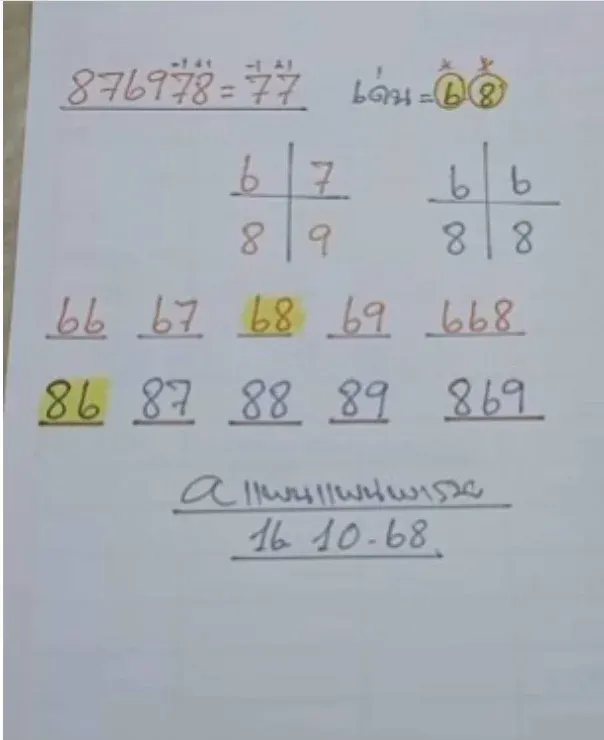 -1 +1 -1 +1
876978 = 77 เด่น = 6 8
6 7 6 6
8 9 8 8
66 67 68 69 668
86 87 88 89 869
16 10-68